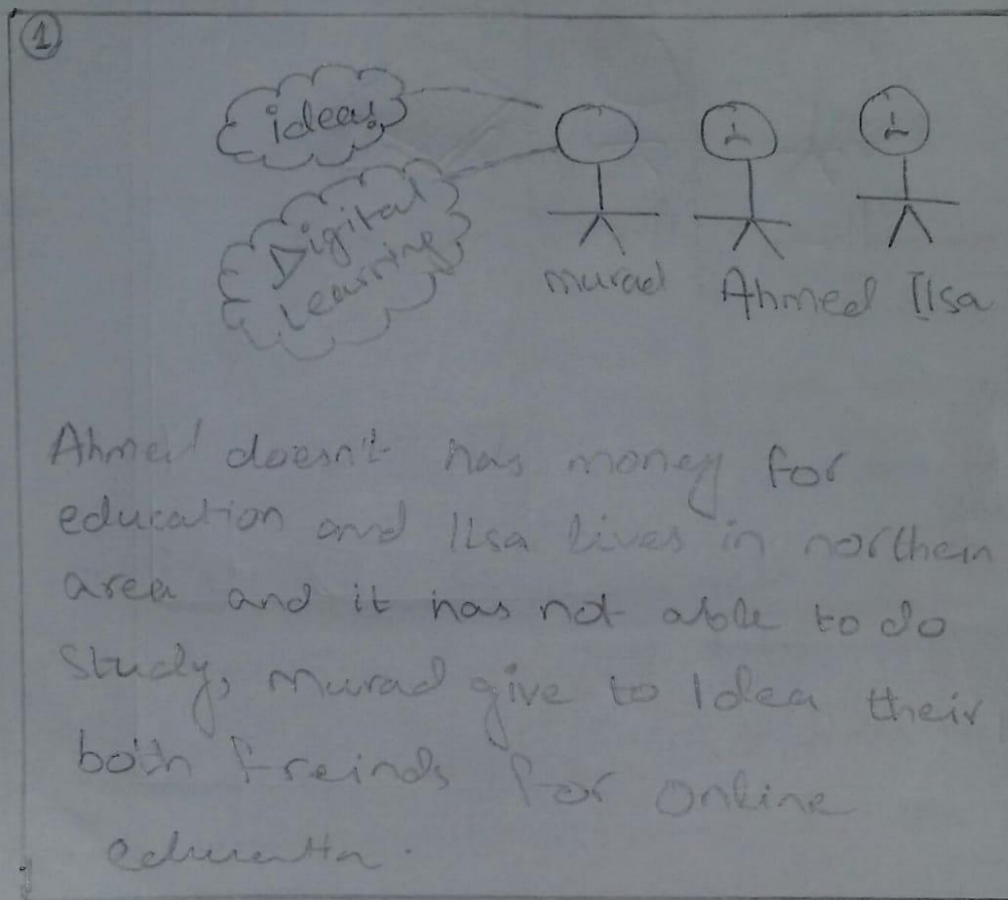 1
ideas
Digital
Learning
murad Ahmed Ilsa
Ahmed doesn't has money for
education and Ilsa lives in northern
area and it has not able to do
study, murad give to Idea their
both freinds for online